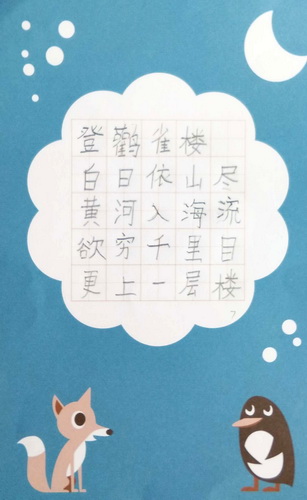 登鹳雀楼
白日依山尽
黄河入海流
欲穷千里目
更上一层楼
7